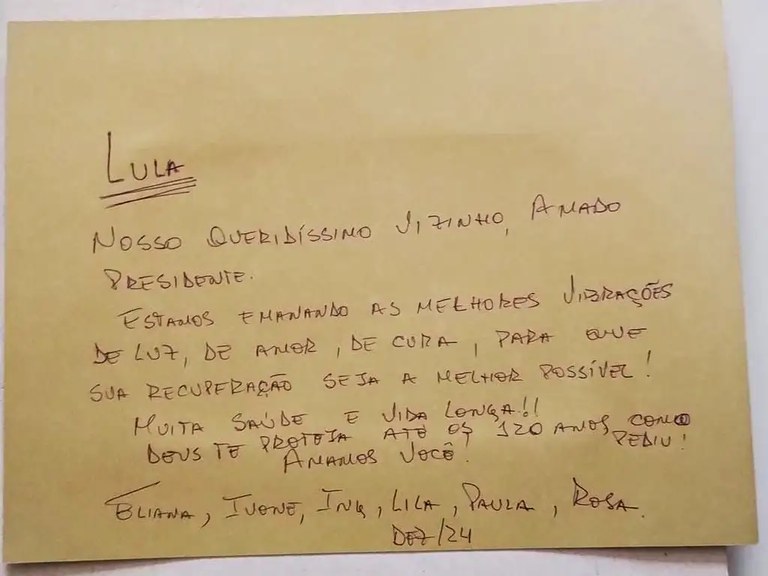 LULA
NOSSO QUERIDÍSSIMO VIZINHO, AMADO
PRESIDENTE.
ESTAMOS EMANANDO AS MELHORES VIBRAÇÕES
DE LUZ, DE AMOR, DE CURA, PARA QUE
SUA RECUPERAÇÃO SEJA A MELHOR POSSÍVEL!
MUITA SAÚDE E VIDA LONGA!!
DEUS TE PROTEJA ATÉ OS 120 ANOS COMO
PEDIU!
AMAMOS VOCÊ!
ELIANA, IVONE, INA, LILA, PAULA, ROSA.
DEZ/24